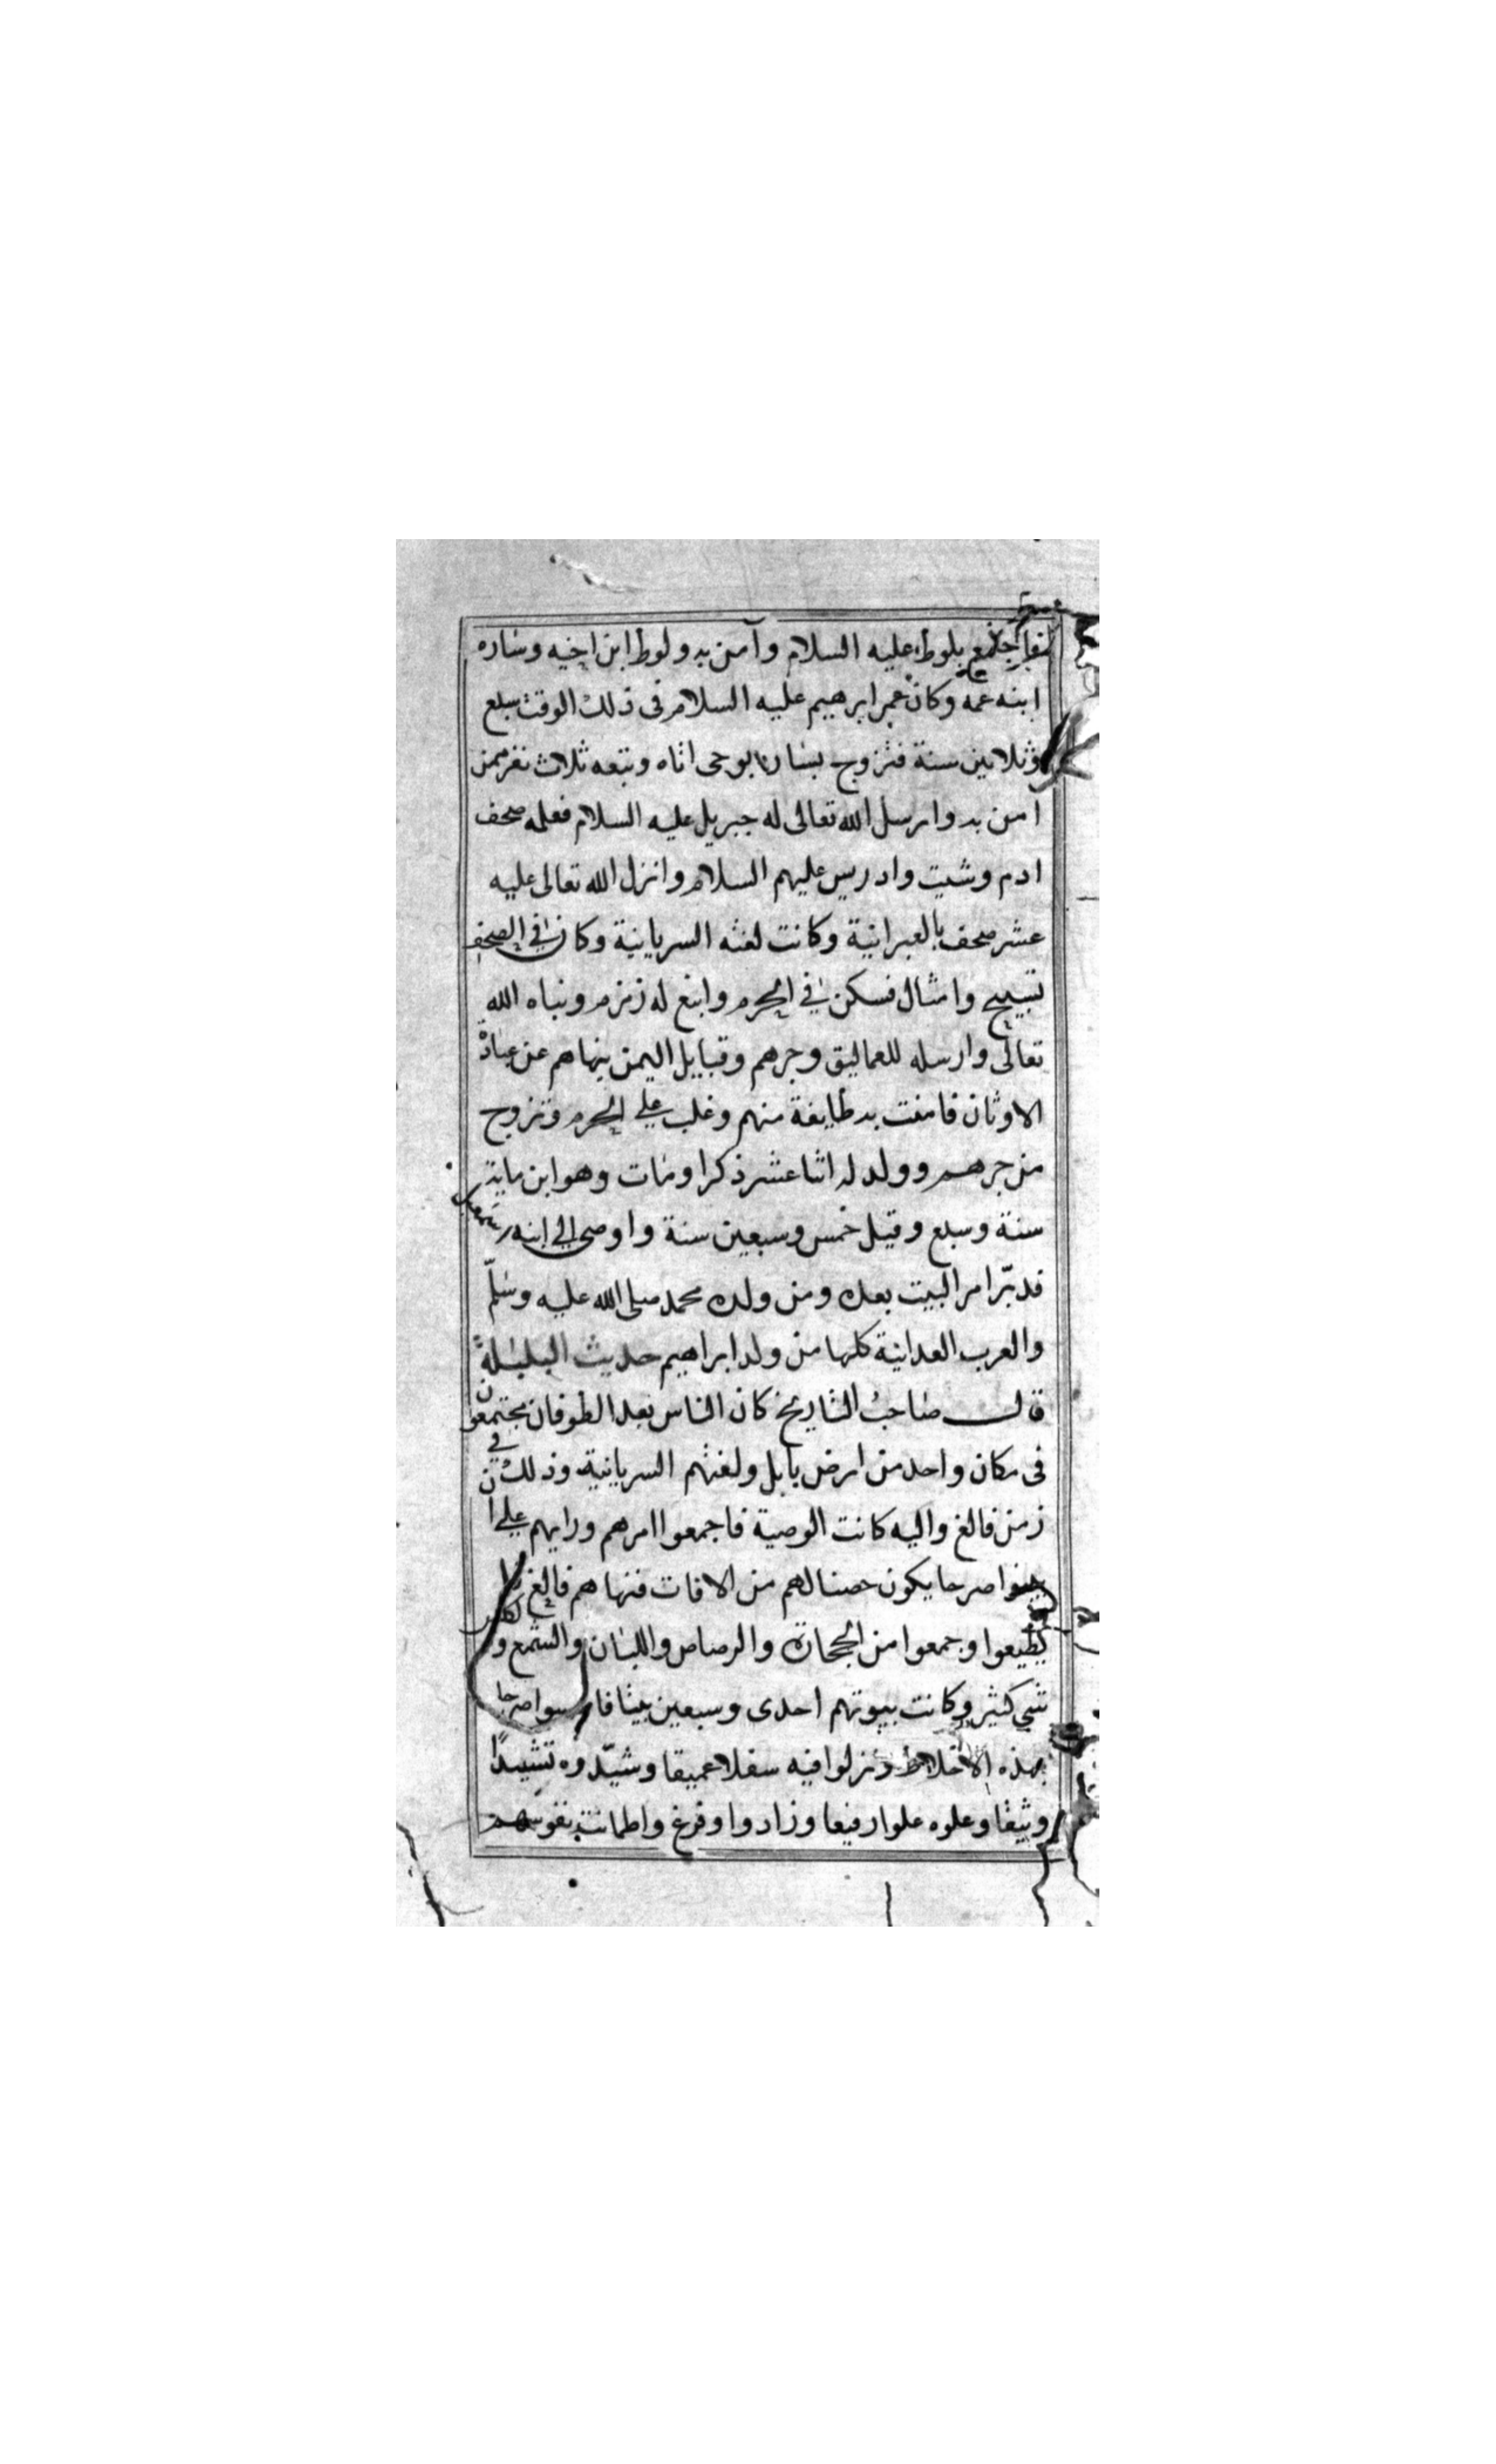 فاجتمع بلوط عليه السلام وآمن به ولوط ابن اخيه وساره
ابنه عمه وكان عمر ابرهيم عليه السلام في ذلك الوقت سبع
وثلاثين سنة فتزوج بساره بوحى اتاه وتبعه ثلاث نفر ممن
امن به وارسل الله تعالى له جبريل عليه السلام فعلمه صحف
ادم وشيت وادريس عليهم السلام وانزل الله تعالى عليه
عشر صحف بالعبرانية وكانت لغته السريانية وكان في الصحف
تسبيح وامثال فسكن في الحرم وانبع له زمزم ونباه الله
تعالى وارسله للعماليق وجرهم وقبايل اليمن ينهاهم عن عبادة
الاوثان فامنت به طايفة منهم وغلب على الحرم وتزوج
من جرهم وولد له اثنا عشر ذكرا ومات وهو ابن ماية
سنة وسبع وقيل خمس وسبعين سنة واوصى الى ابنه
فدبّر امر البيت بعده ومن ولده محمد صلى الله عليه وسلّم
والعرب العدانية كلها من ولد ابراهيم حديث البلبلة
قال صاحب التاريخ كان الناس بعد الطوفان مجتمعون
في مكان واحد من ارض بابل ولغتهم السريانية وذلك في
زمن فالغ واليه كانت الوصية فاجمعوا امرهم ورايهم على ان
صرحا يكون حصنا لهم من الافات فنهاهم فالغ
يطيعوا وجمعوا من الحجارة والرصاص واللبان والشمع و
شي كثير وكانت بيوتهم احدى وسبعين بيتا صرحا
بهذه الاخلاط ونزلوا فيه سفلا عميقا وشيّدوه تشيدًا
وثيقا وعلوه علوا رفيعا وزادوا وفرغ واطمانت نفوسهم